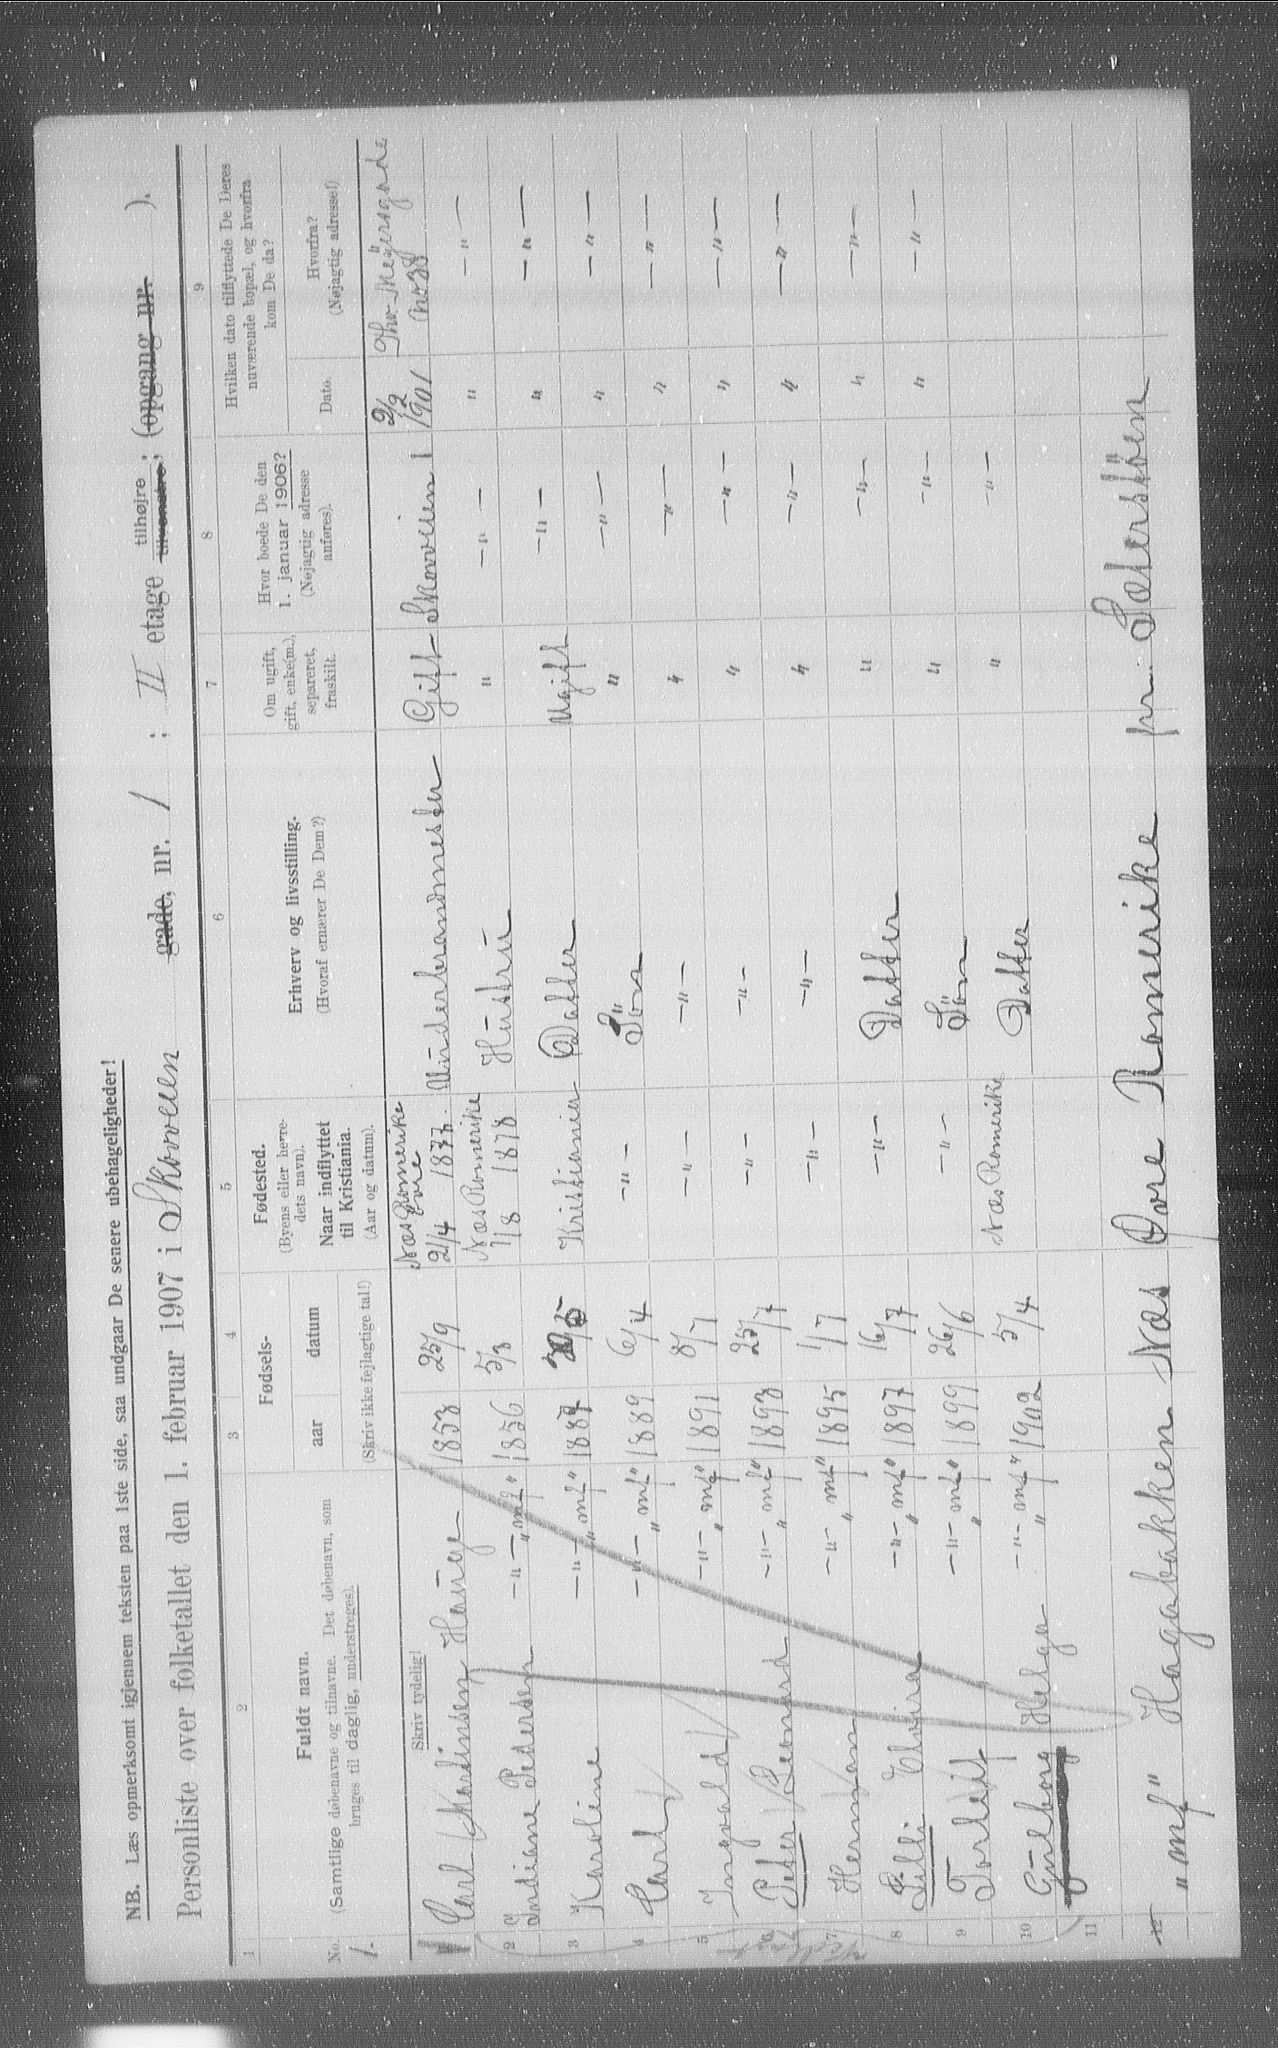 NB. Læs opmerksomt igjennem teksten paa 1ste side, saa undgaar De senere ubehageligheder!
Personliste over folketallet den 1. februar 1907 i Skovveien gade, nr. 1 ; II etage tilhøjre tilvenstre; (opgang nr. ).
1 2 3 4 5 6 7 8 9
No. Fuldt navn. (Samtlige døbenavne og tilnavne. Det døbenavn, som bruges til daglig, understreges). Fødsels- aar datum (Skriv ikke fejlagtige tal!) Fødested. (Byens eller herredets navn). Naar indflyttet til Kristiania. (Aar og datum). Erhverv og livsstilling. (Hvoraf ernærer De Dem?) Om ugift, gift, enke(m.), separeret, fraskilt. Hvor boede De den 1. januar 1906? (Nøjagtig adresse anføres). Hvilken dato tilflyttede De Deres nuværende bopæl, og hvorfra kom De da? Dato. Hvorfra? (Nøjagtig adresse!)
Skriv tydelig!
1. Carl Martinsen Hauge 1853 25/9 Næs Romerike Øvre 21/4 Underbrandmester Gift Skovveien 1 1901 Thv. Meÿersgade
2 Indiane Pedersen —"— „mf" 1856 5/3 Næs Romerike 1/8 1878 Hustru " —"— " —"—
3 Karoline —"— „mf" Kristiania Datter Ugift —"— " —"—
4 Carl —"— „mf" 1889 6/4 —"— Søn " —"— " —"—
5 Ingvald —"— „mf" 1891 8/7 —"— —"— " —"— " —"—
6 Peter Leonard —"— „mf" 1893 25/7 —"— —"— " —"— " —"—
7 Herman —"— „mf" 1895 1/7 —"— —"— " —"— " —"—
8 Lilli Elvira —"— „mf" 1897 16/7 —"— Datter " —"— " —"—
9 Torleif —"— „mf" 1899 26/6 —"— Søn " —"— " —"—
10 Gulborg Helga —"— „mf" 1902 5/4 Næs Romerike Datter " —"—
11
12 „mf" Hagabakken Næs Øvre Romerike pr. Sæterstöen